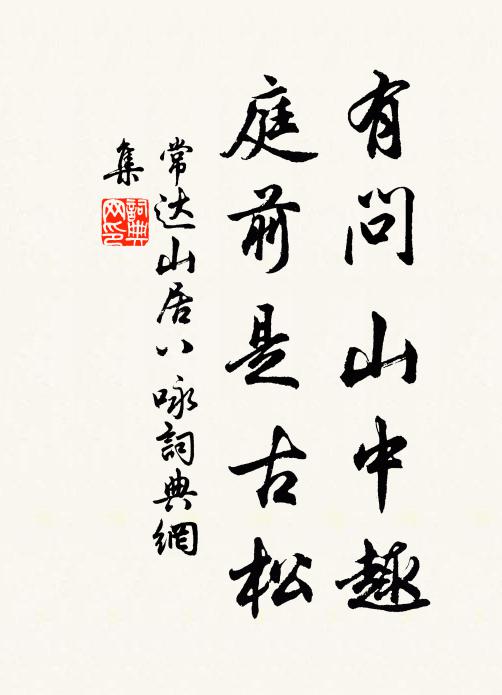 有問山中趣
庭前是古松
常达山居八咏詞典網
集
詞典网印